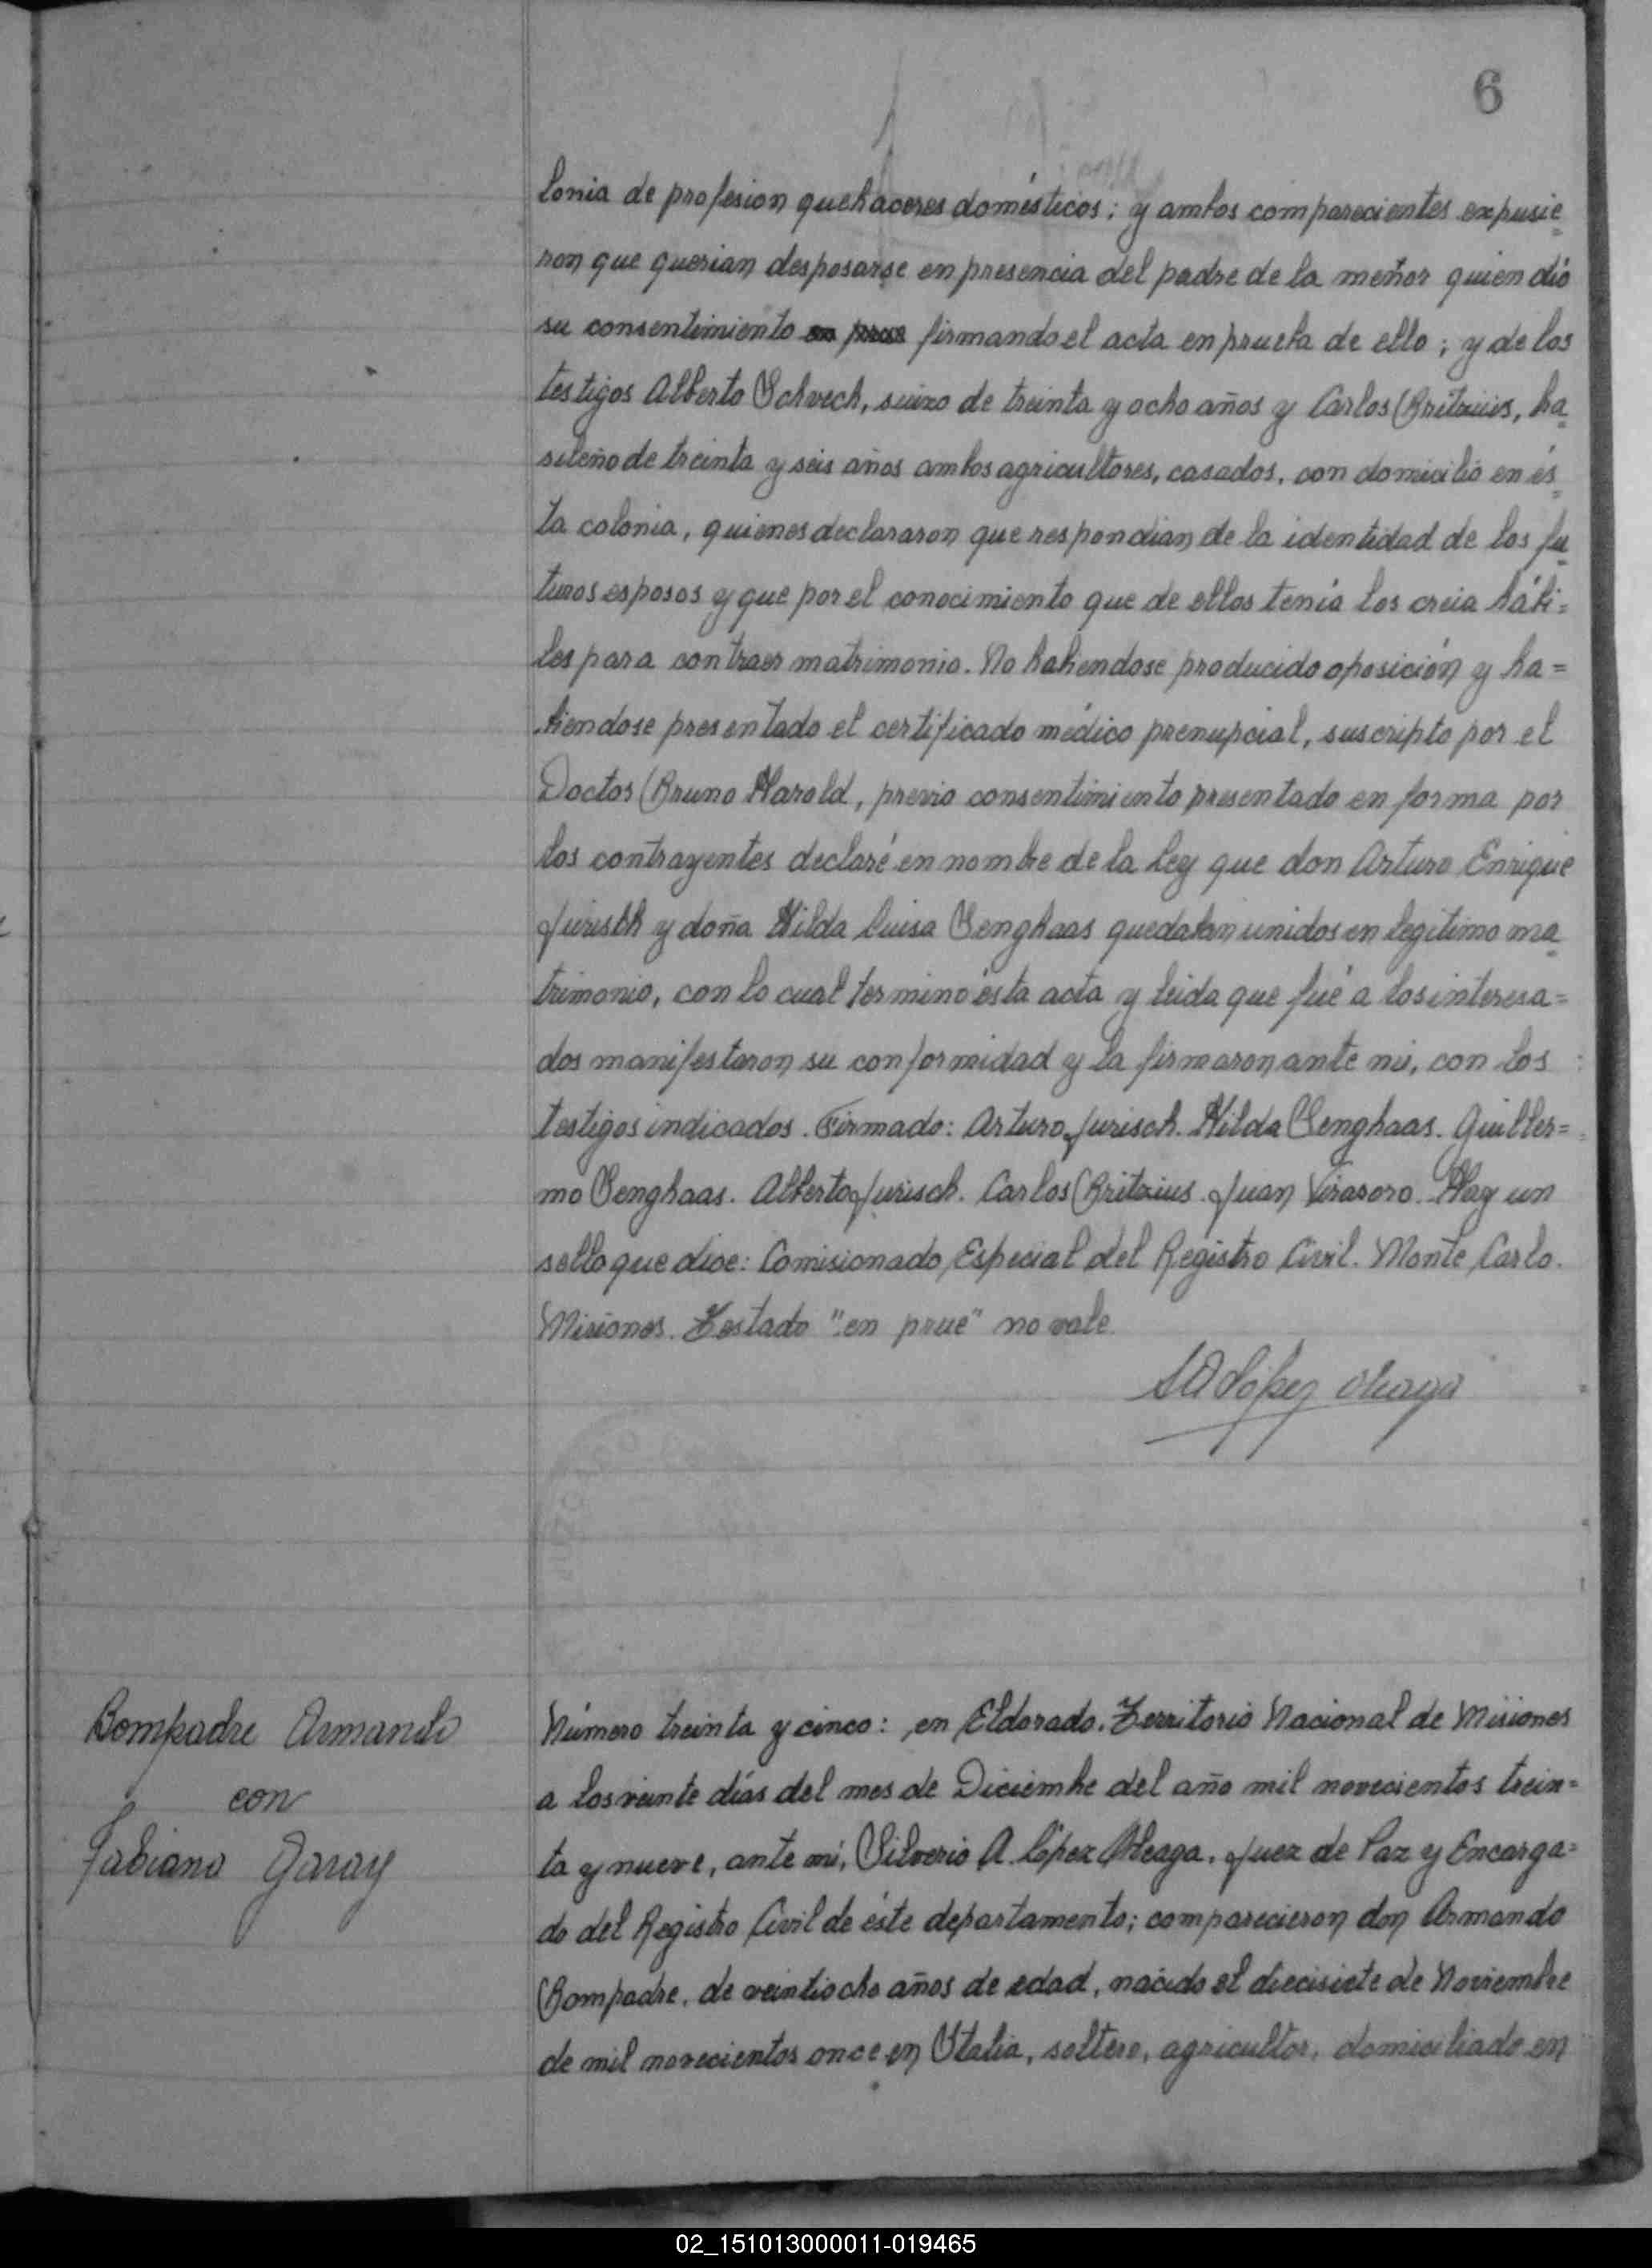 6
lonia de profesion quehaceres domésticos; y ambos comparecientes expusie=
ron que querian desposarse en presencia del padre de la menor quien dió
su consentimiento en prue firmando el acta en prueba de ello; y de los
testigos Alberto Schvech, suizo de treinta y ocho años y Carlos Britzius, bra
sileño de treinta y seis años ambos agricultores, casados, con domicilio en és=
ta colonia, quienes declararon que respondian de la identidad de los fu
turos esposos y que por el conocimiento que de ellos tenía los creia hábi=
les para contraer matrimonio. No habiendose producido oposición y ha=
biendose presentado el certificado médico prenupcial, suscripto por el
Doctos Bruno Harold, previo consentimiento presentado en forma por
los contrayentes declaré en nombre de la ley que don Arturo Enrique
Jurisch y doña Hilda Luisa Senghaas quedaban unidos en legitimo ma
trimonio, con lo cual terminó ésta acta y leida que fué a los interesa=
dos manifestaron su conformidad y la firmaron ante mi, con los
testigos indicados. Firmado: Arturo Jurisch. Hilda Senghaas. Guiller=
mo Senghaas. Alberto Jurisch. Carlos Britzius. Juan Virasoro. Hay un
sello que dice: Comisionado Especial del Registro Civil. Monte Carlo.
Misiones. Testado "en prue" no vale.
SA López Aleaga
Bompadre Armando
con
Fabiana Garay
Número treinta y cinco: en Eldorado. Territorio Nacional de Misiones
a los veinte días del mes de Diciembre del año mil novecientos trein=
ta y nueve, ante mi, Silverio A. López Aleaga. Juez de Paz y Encarga=
do del Registro Civil de éste departamento; comparecieron don Armando
Bompadre, de veintiocho años de edad, nacido el diecisiete de Noviembre
de mil novecientos once en Italia, soltero, agricultor, domiciliado en
02_151013000011-019465